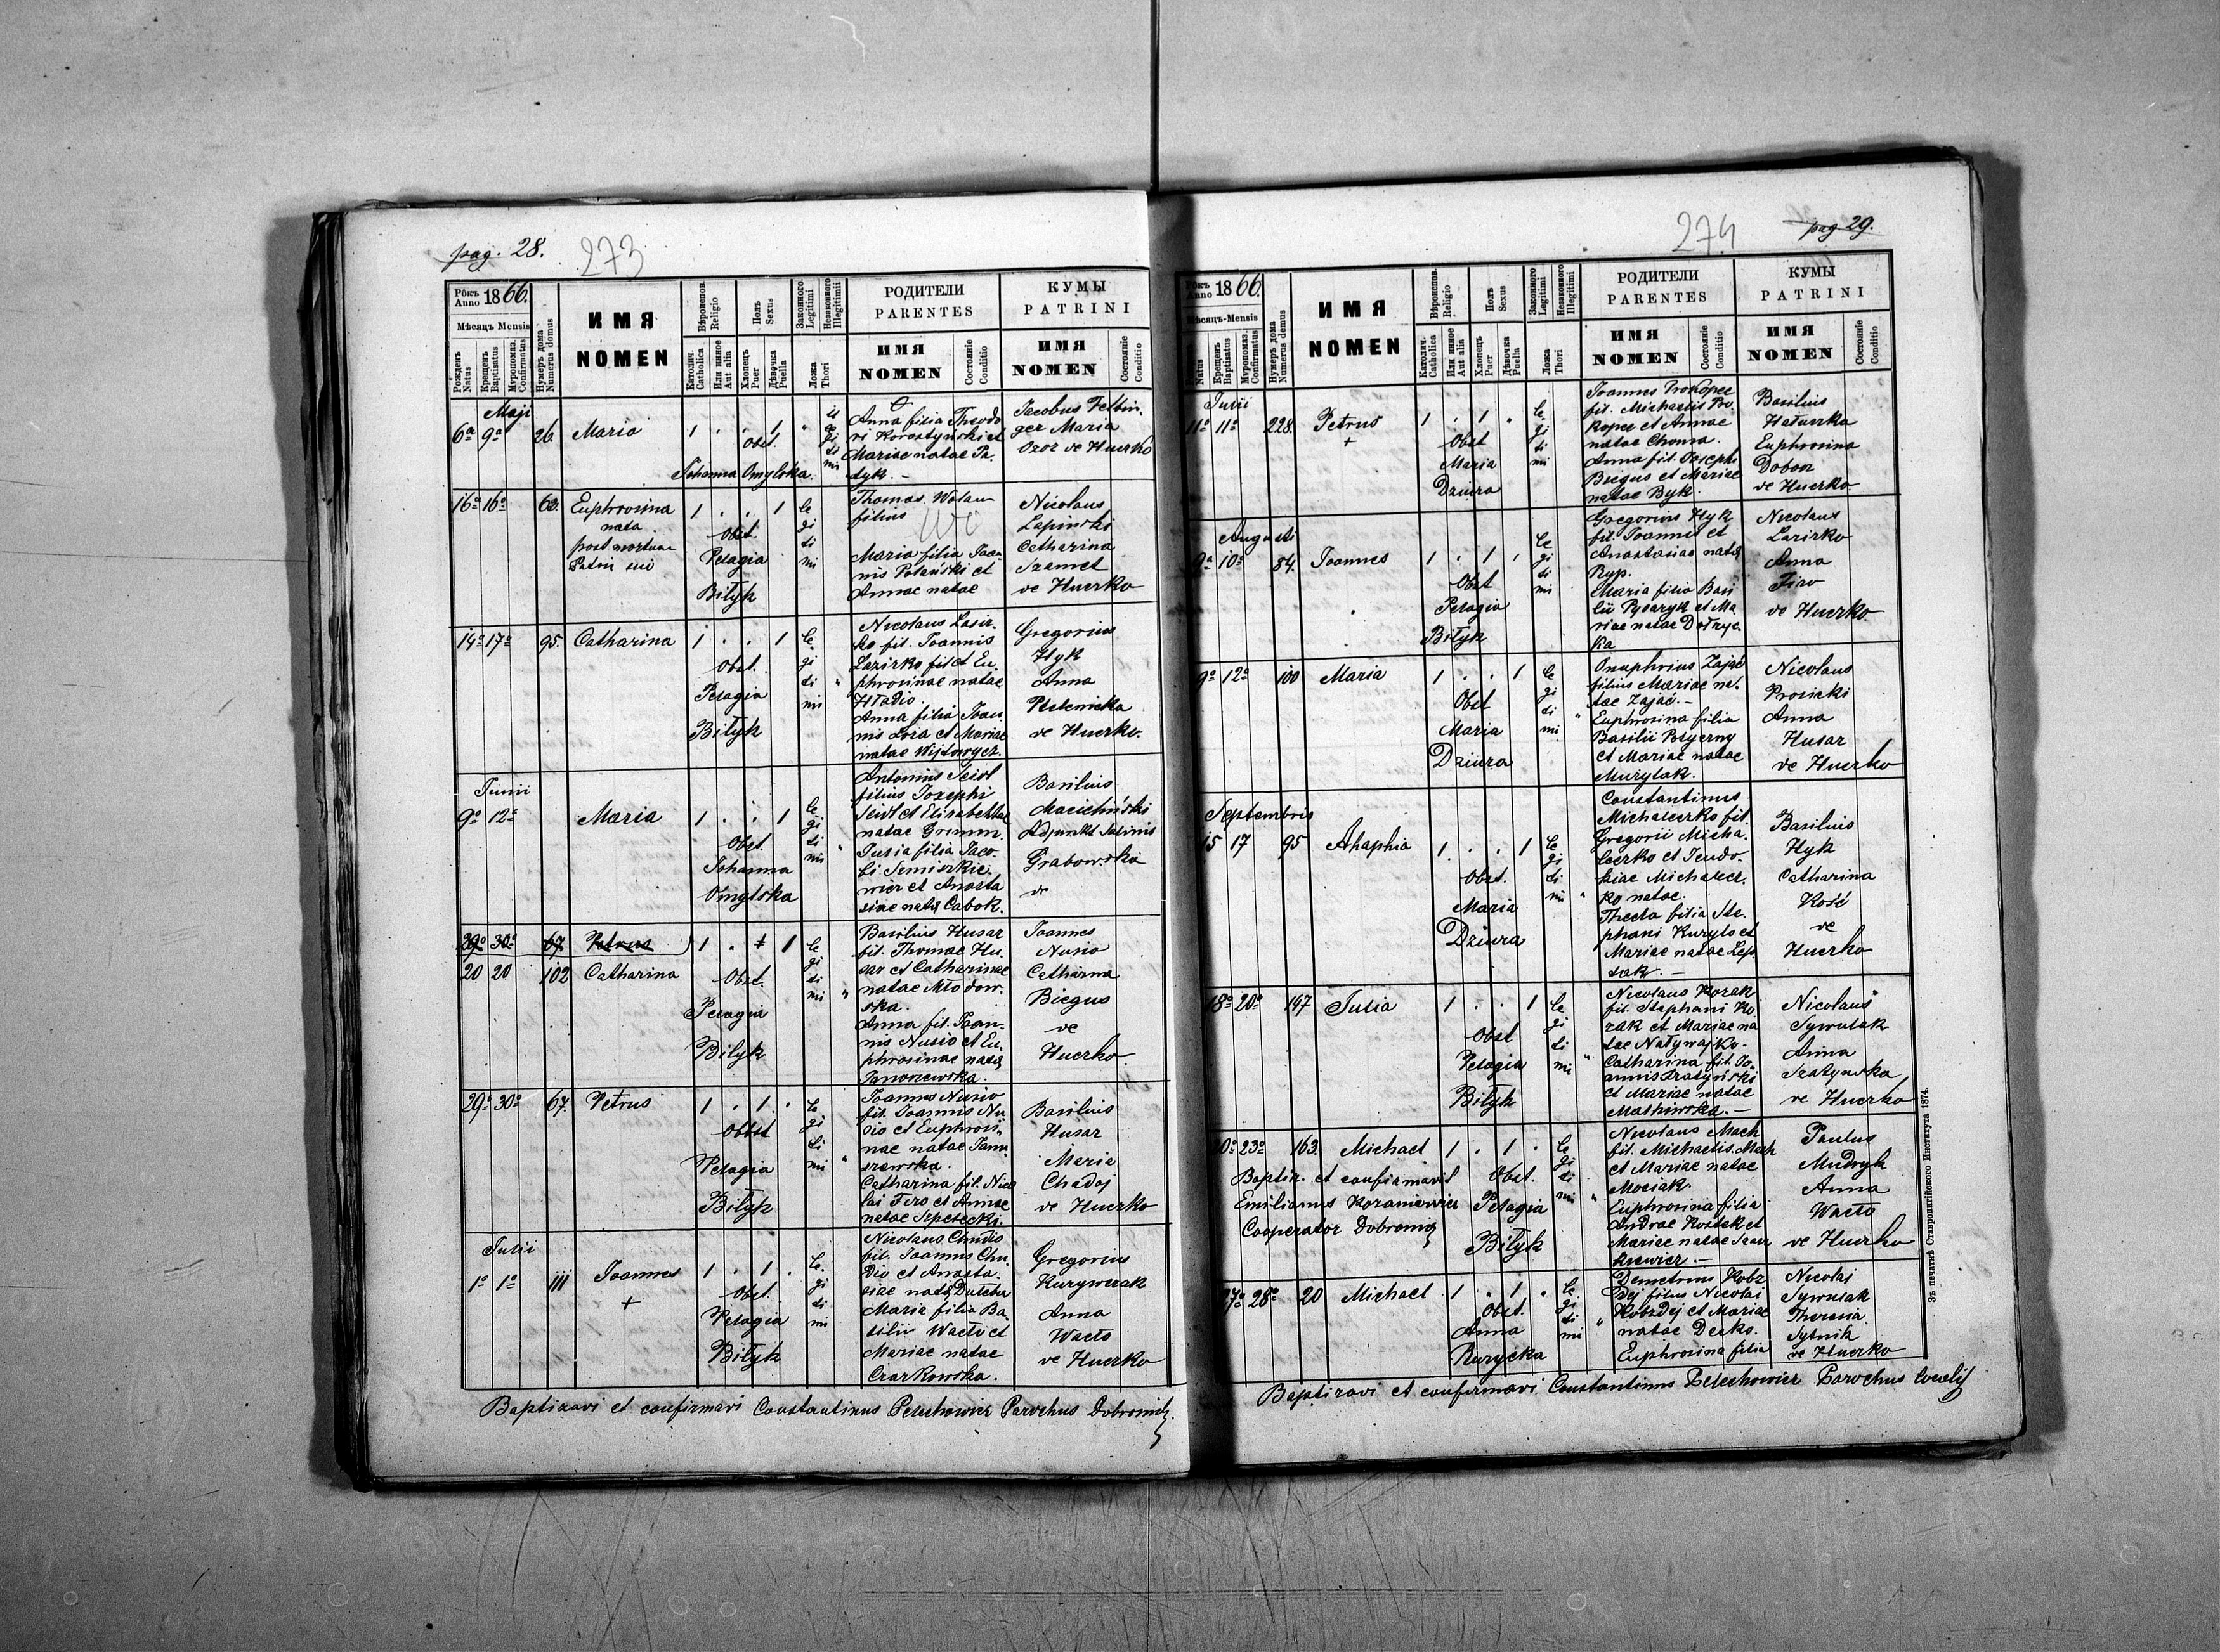 pag. 28.
273
Рôкъ Anno 1866.
Мѣсяцъ Mensis
Рожденъ Natus
Крещенъ Baptisatus
Мѵропомаз. Confirmatus
Нумеръ дома Numerus domus
ИМЯ NOMEN
Вѣроиспов. Religio
Католич. Catholica
Или инное Aut alia
Полъ Sexus
Хлопецъ Puer
Дѣвочка Puella
Законного Legitimi
Незаконного Illegitimi
Ложа Thori
РОДИТЕЛИ PARENTES
ИМЯ NOMEN
Состояніе Conditio
КУМЫ PATRINI
ИМЯ NOMEN
Состояніе Conditio
Maji
6a 9a 26 Maria 1 . . 1
Obst.
Johanna Omylska.
Anna filia Theodo
ri Korostyński et
Mariae natae
dyk. –
Jacobus Felbin
ger Maria
de Huczko
16a 16a Euphrosina 1 . . 1 le
nata gi
post mortem ti
Patris sui mi
Obst.
Pelagia
Biłyk
Thomas
filius
Maria filia Joan
nis Polański et
Annae natae
Nicolaus
Łapinski
Catharina
Szamet
de Huczko
14a 17a 95. Catharina 1 . . 1 le
gi
ti
mi
Obst.
Pelagia
Biłyk
Nicolaus Łazir
ko fil. Joannis
Łazirko fil et Eu
phrosinae natae
Hładio.
Anna filia Joan
nis Łoza et Mariae
natae Wijtowycz.
Gregorius
Hyk
Anna
de Huczko.
Junii
9a 12a Maria 1 . . 1 le
gi
ti
mi
Obst.
Johanna
Omylska
Antonius Seidl
filius Josephi
Seidl et Elisabethae
natae Grimm.
Julia filia Jaco
bi Semiszkie
wicz et Anasta
siae natae Cabok.
Basilius
Macieliński
Adjunkt Salinis
Grabowska
de
29a 30a 67 Petrus 1 . 1 1 le
20 20 102 Catharina gi
ti
mi
Obst.
Pelagia
Bilyk
Basilius Husar
fil. Thomae Hu
sar et Catharinae
natae Młodow
ska.
Anna fil. Joan
nis Nusio et Eu
phrosinae natae
Janoszewska.
Joannes
Nusio
Catharina
Biegus
de
Huczko
29a 30a 67. Petrus 1 . 1 . le
gi
ti
mi
Obst
Pelagia
Biłyk
Joannes Nusio
fil. Joannis Nu
sio et Euphrosi
nae natae Janu
szewska.
Catharina fil. Nico
lai Fero et Annae
natae Szpetecki.
Basilius
Husar
Maria
Chadoj
de Huczko
Julii
1a 1a 111 Joannes 1 . 1 . le
+ gi
ti
mi
Obst.
Pelagia
Biłyk
Nicolaus Chudio
fil. Joannis Chu
dio et Anasta
siae natae
Maria filia Ba
silii Wacło et
Mariae natae
Czarkowska.
Gregorius
Kurywczak
Anna
Wacło
de Huczko
Baptizavi et confirmavi Constantinus Pelechowicz Parochus Dobromil.
274
pag. 29.
Рôкъ Anno 1866.
Мѣсяцъ-Mensis
Natus
Крещенъ Baptisatus
Мѵропомаз. Confirmatus
Нумеръ дома Numerus domus
ИМЯ NOMEN
Вѣроиспов. Religio
Католич. Catholica
Или инное Aut alia
Полъ Sexus
Хлопецъ Puer
Дѣвочка Puella
Законного Legitimi
Незаконного Illegitimi
Ложа Thori
РОДИТЕЛИ PARENTES
ИМЯ NOMEN
Состояніе Conditio
КУМЫ PATRINI
ИМЯ NOMEN
Состояніе Conditio
Julii
11a 11a 228. Petrus 1 . 1 . le
+ gi
ti
mi
Obst
Maria
Dziura
Joannes Prokopec
fil. Michaelis Pro
kopec et Annae
natae Choma.
Anna fil. Josephi
Biegus et Mariae
natae Byk.
Basilius
Hałuszka
Euphrosina
Doboz
de Huczko.
Augusti
9a 10a 84. Joannes 1 . 1 . le
gi
ti
mi
Obst
Pelagia
Biłyk
Gregorius Hyk
fil. Joannis et
Anastasiae natae
Ryp.
Maria filia Basi
lii Pysaryk et Ma
riae natae Dołzyc
ka
Nicolaus
Łazirko
Anna
de Huczko.
9a 12a 100 Maria 1 . . 1 le
gi
ti
mi
Obst
Maria
Dziura
Onuphrius Zając
filius Mariae na
tae Zając. –
Euphrosina filia
Basilii Potyczny
et Mariae natae
Murylak.
Nicolaus
Prosicki
Anna
Husar
de Huczko
Septembris
15 17 95 Ahaphia 1 . . 1 le
gi
ti
mi
Obst.
Maria
Dziura
Constantinus
Michalczko fil.
Gregorii Micha
lczko et Teudo
siae Michalcz
ko natae.
Thecla filia Ste
phani Kuryło et
Mariae natae
Basilius
Hyk
Catharina
Kość
de
Huczko
18a 20a 147 Julia 1 . . 1 le
gi
ti
mi
Obst
Pelagia
Biłyk
Nicolaus Kozak
fil. Stephani Ko
zak et Mariae na
tae Naływajko.
Catharina fil. Jo
annis
et Mariae natae
Nicolaus
Sywulak
Anna
de Huczko
20a 23a 163. Michael 1 . 1 . le
gi
ti
mi
Baptiz. et confirmavit
Emilianus Kozaniewicz
Cooperator Dobromil
Obst.
Pelagia
Bilyk
Nicolaus Mach
fil. Michaelis Mach
et Mariae natae
Mociak.
Euphrosina filia
Andreae Kostek et
Mariae natae
kiewicz –
Paulus
Mudryk
Anna
Wacło
de Huczko
27a 28a 20 Michael 1 . 1 . le
gi
ti
mi
Obst.
Anna
Kurycka
Demetrius Kobz
dej filius Nicolai
Kobzdej et Mariae
natae Decko.
Euphrosina filia
Nicolai
Sywulak
Theresia
Sytnik
de Huczko
Baptizavi et confirmavi Constantinus Pelechowicz Parochus localis
Зъ печатнѣ Ставропигійского Института 1874.